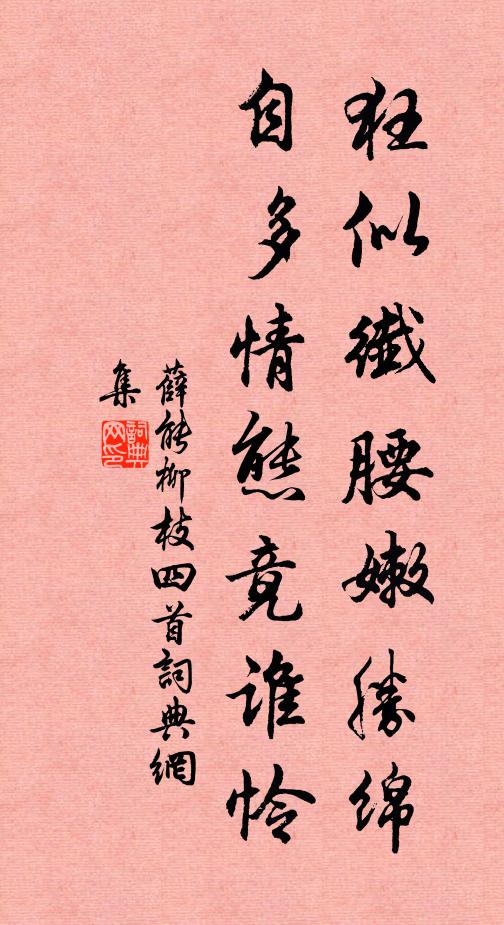 狂似纖腰嫩勝綿
自多情態竟誰憐
薛能柳枝四首詞典網
集
詞典
网印